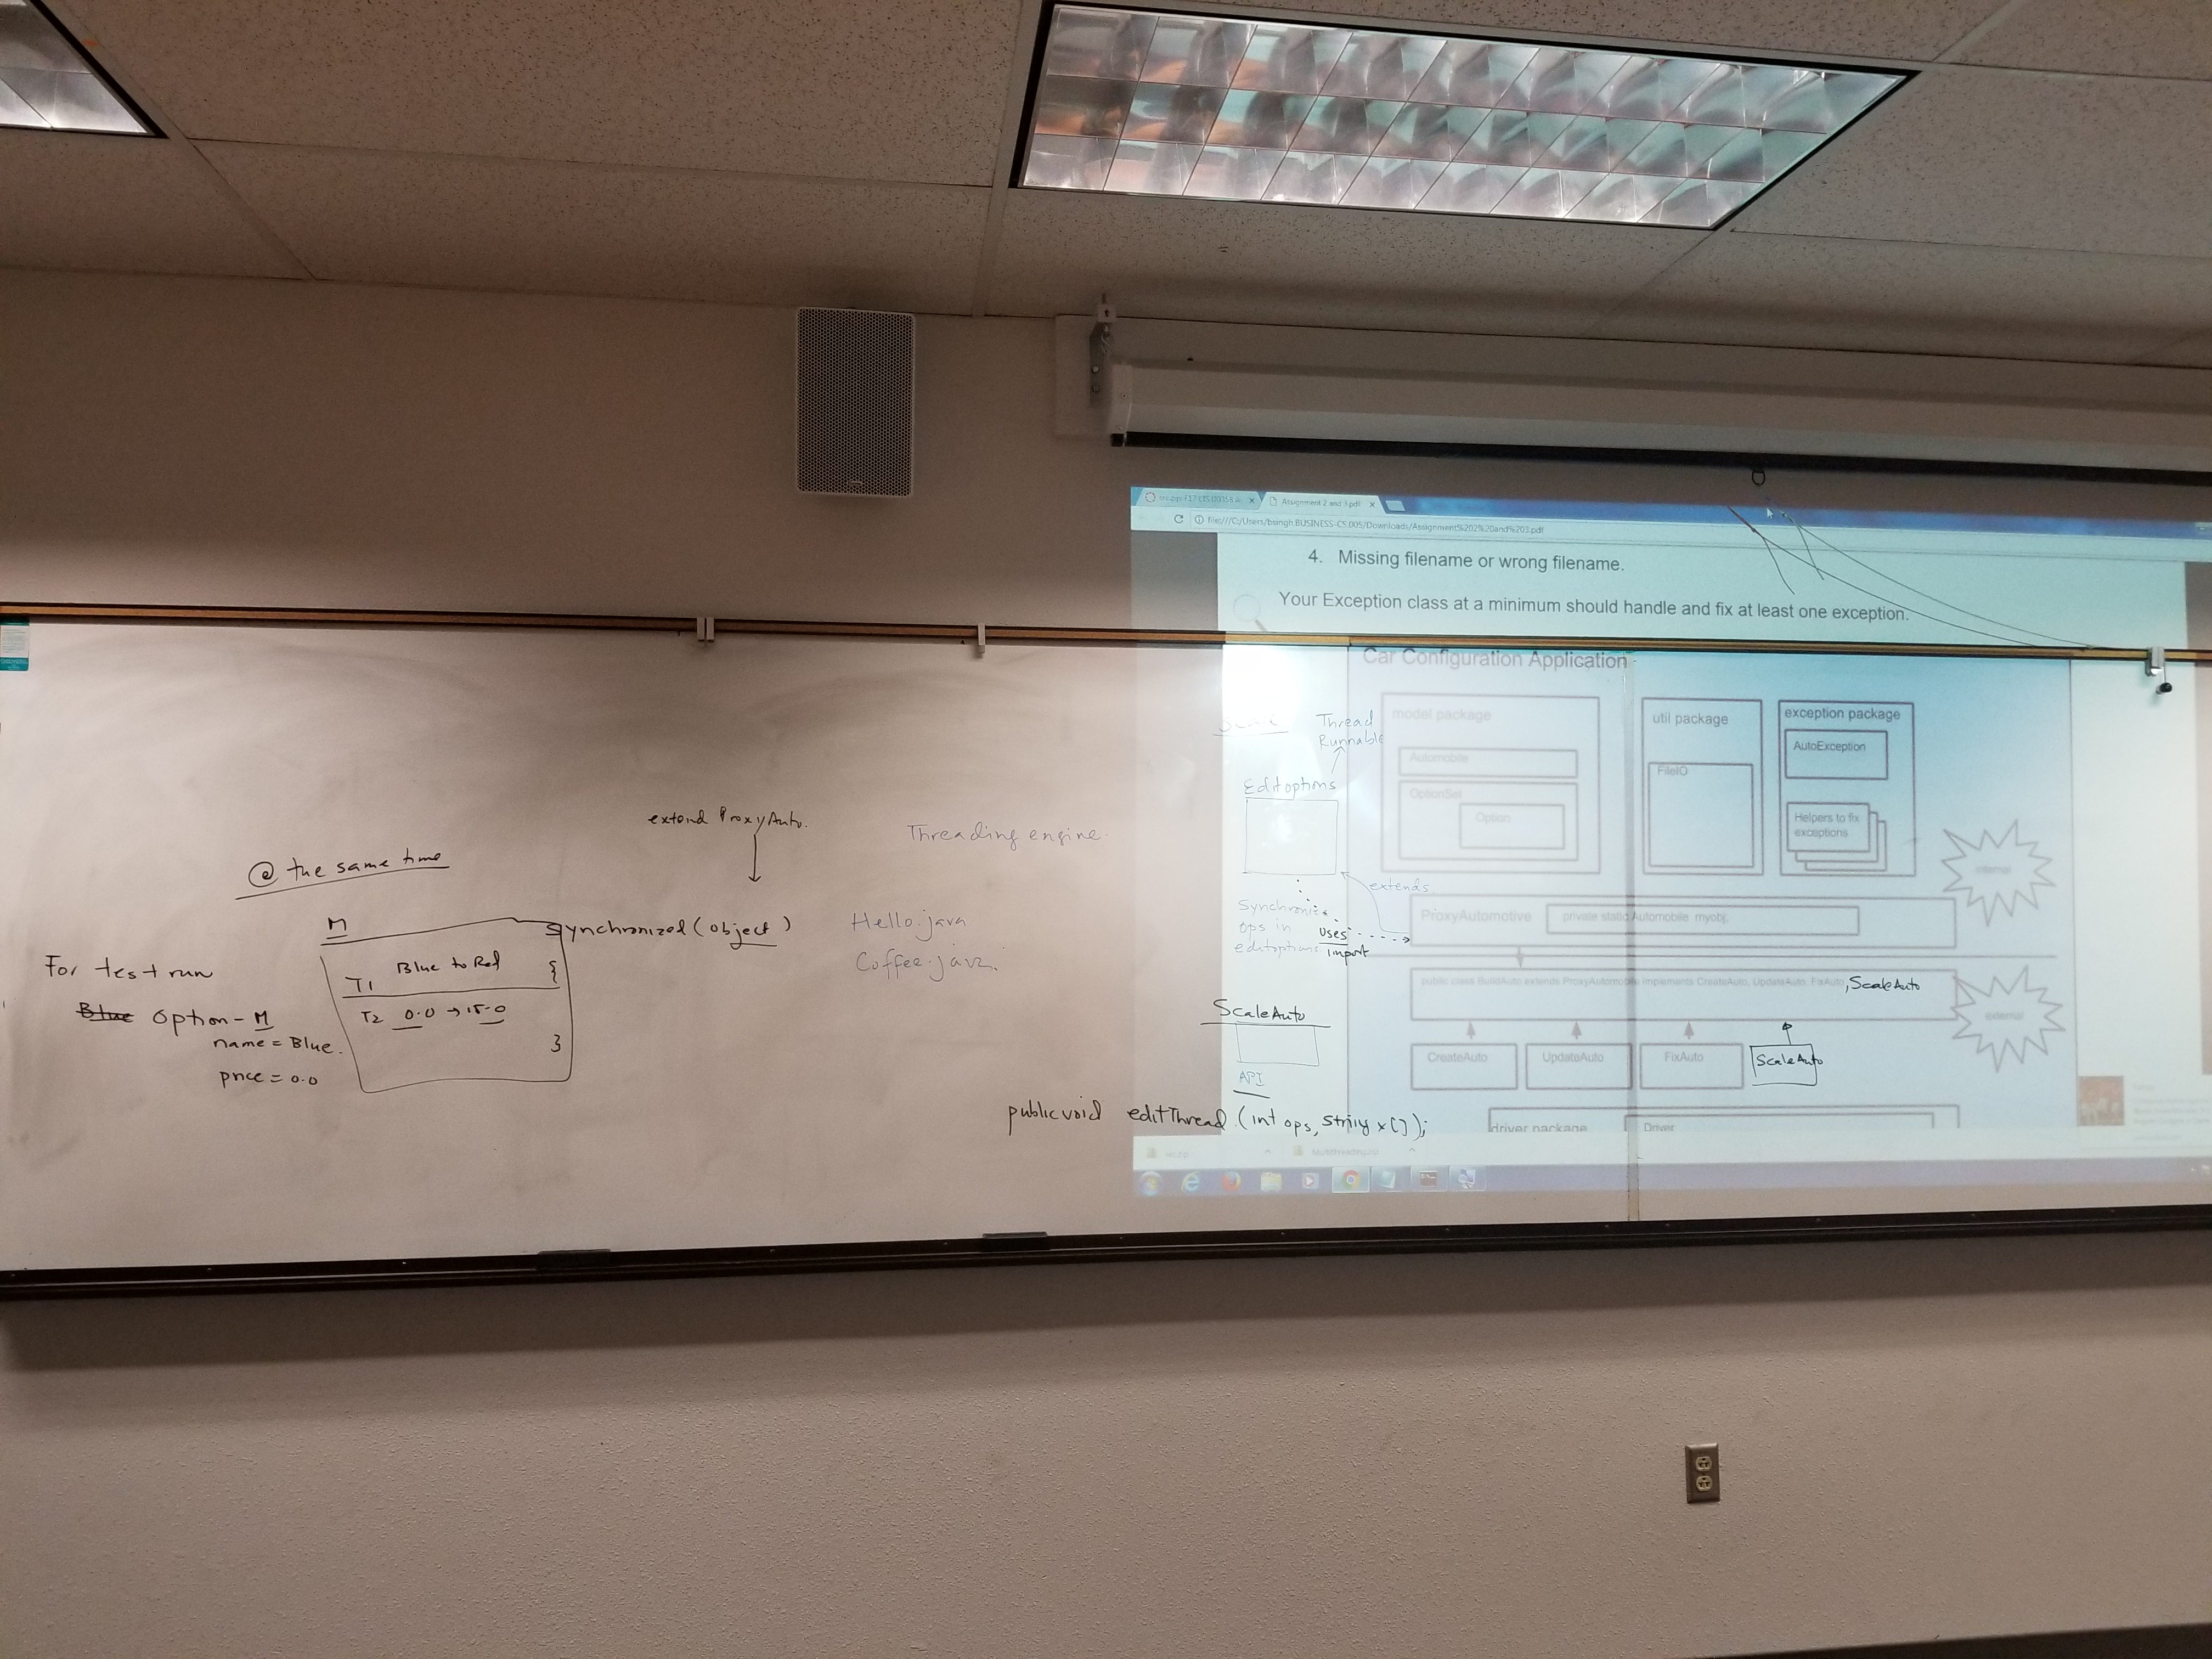 Assignment 2 and 3.pdf
file:///C:/Users/bsingh.BUSINESS-CS.005/Downloads/Assignment%202%20and%203.pdf
4. Missing filename or wrong filename.
Your Exception class at a minimum should handle and fix at least one exception.
Car Configuration Application
model package
Automobile
OptionSet
Option
util package
FileIO
exception package
AutoException
Helpers to fix
exceptions
internal
ProxyAutomotive
private static Automobile myobj;
public class BuildAuto extends ProxyAutomobile implements CreateAuto, UpdateAuto, FixAuto
, ScaleAuto
external
CreateAuto
UpdateAuto
FixAuto
ScaleAuto
driver package
Driver
Thread
Runnable
Editoptions
extends
Synchronize
ops in
editoptions
uses
import
ScaleAuto
API
public void editThread (int ops, String x[]);
extend ProxyAuto.
Threading engine.
Hello.java
Coffee.java.
@ the same time
M
synchronized (object)
{
T1 Blue to Red
T2 0.0 → 15.0
}
For test run
Blue Option - M
name = Blue.
price = 0.0